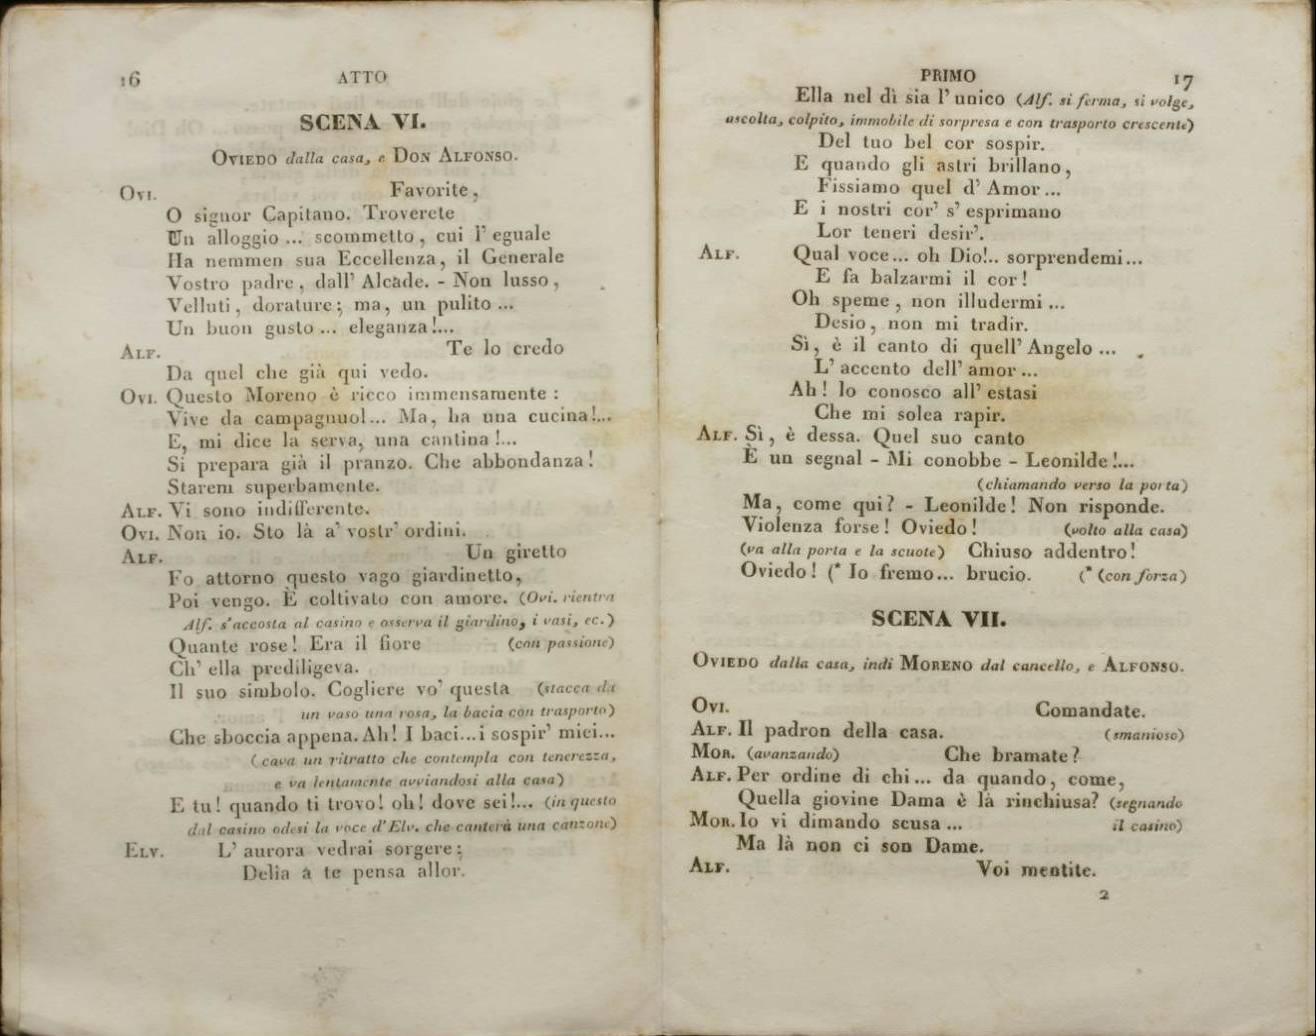 16 ATTO
SCENA VI.
Oviedo dalla casa, e Don Alfonso.
Ovi. Favorite,
O signor Capitano. Troverete
Un alloggio ... scommetto, cui l' eguale
Ha nemmen sua Eccellenza, il Generale
Vostro padre, dall' Alcade. - Non lusso,
Velluti, dorature; ma, un pulito ...
Un buon gusto ... eleganza!...
Alf. Te lo credo
Da quel che già qui vedo.
Ovi. Questo Moreno è ricco immensamente:
Vive da campagnuol... Ma, ha una cucina!...
E, mi dice la serva, una cantina!...
Si prepara già il pranzo. Che abbondanza!
Starem superbamente.
Alf. Vi sono indifferente.
Ovi. Non io. Sto là a' vostr' ordini.
Alf. Un giretto
Fo attorno questo vago giardinetto,
Poi vengo. È coltivato con amore. (Ovi. rientra
Alf. s'accosta al casino e osserva il giardino, i vasi, ec.)
Quante rose! Era il fiore (con passione)
Ch' ella prediligeva.
Il suo simbolo. Cogliere vo' questa (stacca da
un vaso una rosa, la bacia con trasporto)
Che sboccia appena. Ah! I baci...i sospir' miei...
(cava un ritratto che contempla con tenerezza,
e va lentamente avviandosi alla casa)
E tu! quando ti trovo! oh! dove sei!... (in questo
dal casino odesi la voce d'Elv. che canterà una canzone)
Elv. L' aurora vedrai sorgere;
Delia a te pensa allor.
PRIMO 17
Ella nel dì sia l' unico (Alf. si ferma, si volge,
ascolta, colpito, immobile di sorpresa e con trasporto crescente)
Del tuo bel cor sospir.
E quando gli astri brillano,
Fissiamo quel d' Amor...
E i nostri cor' s' esprimano
Lor teneri desir'.
Alf. Qual voce... oh Dio!.. sorprendemi...
E fa balzarmi il cor!
Oh speme, non illudermi ...
Desio, non mi tradir.
Sì, è il canto di quell' Angelo ...
L' accento dell' amor...
Ah! lo conosco all' estasi
Che mi solea rapir.
Alf. Sì, è dessa. Quel suo canto
È un segnal - Mi conobbe - Leonilde!...
(chiamando verso la porta)
Ma, come qui? - Leonilde! Non risponde.
Violenza forse! Oviedo! (volto alla casa)
(va alla porta e la scuote) Chiuso addentro!
Oviedo! (* Io fremo... brucio. (* (con forza)
SCENA VII.
Oviedo dalla casa, indi Moreno dal cancello, e Alfonso.
Ovi. Comandate.
Alf. Il padron della casa. (smanioso)
Mor. (avanzando) Che bramate?
Alf. Per ordine di chi... da quando, come,
Quella giovine Dama è là rinchiusa? (segnando
Mor. Io vi dimando scusa ... il casino)
Ma là non ci son Dame.
Alf. Voi mentite.
2